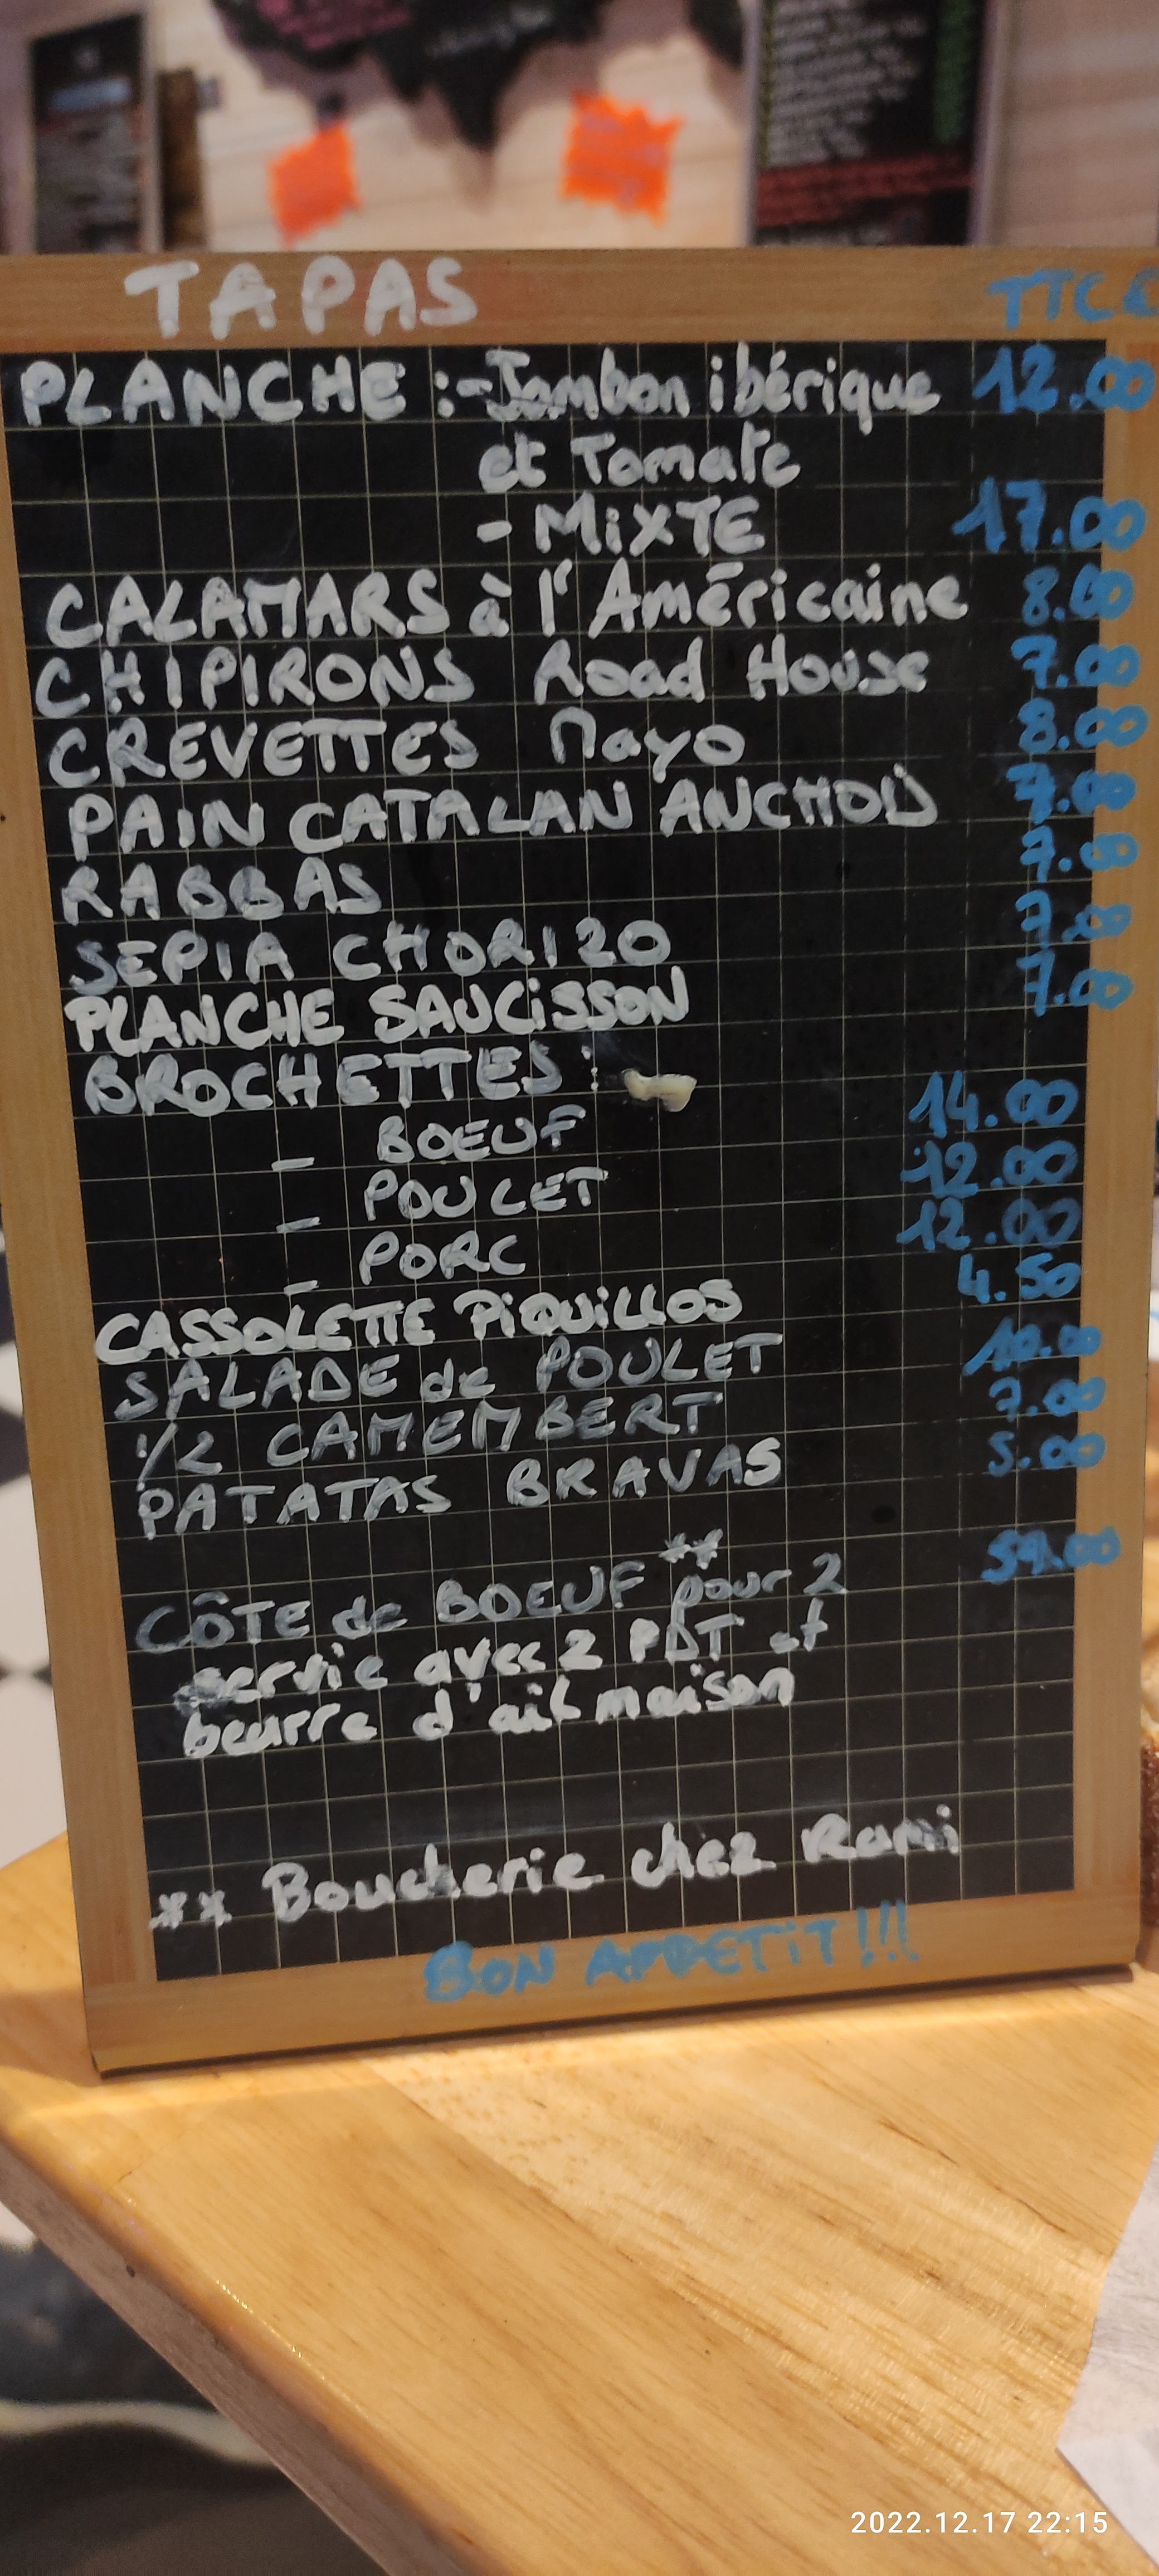 TAPAS TTC €
PLANCHE :- Jambon ibérique 12.00
et Tomate
- MiXTE 17.00
CALAMARS à l'Américaine 8.00
CHIPIRONS Road House 7.00
CREVETTES Mayo 8.00
PAIN CATALAN ANCHOIS 7.00
RABBAS 7.00
SEPIA CHORIZO 7.00
PLANCHE SAUCiSSON 7.00
BROCHETTES :
- BOEUF 14.00
- POULET 12.00
- PORC 12.00
CASSOLETTE PiQUiLLOS 4.50
SALADE de POULET 10.00
1/2 CAMEMBERT 7.00
PATATAS BRAVAS 5.00
CÔTE de BOEUF ** pour 2
servie avec 2 PDT et
beurre d'ail maison
** Boucherie chez Rami
BON APPETiT!!!
2022.12.17 22:15